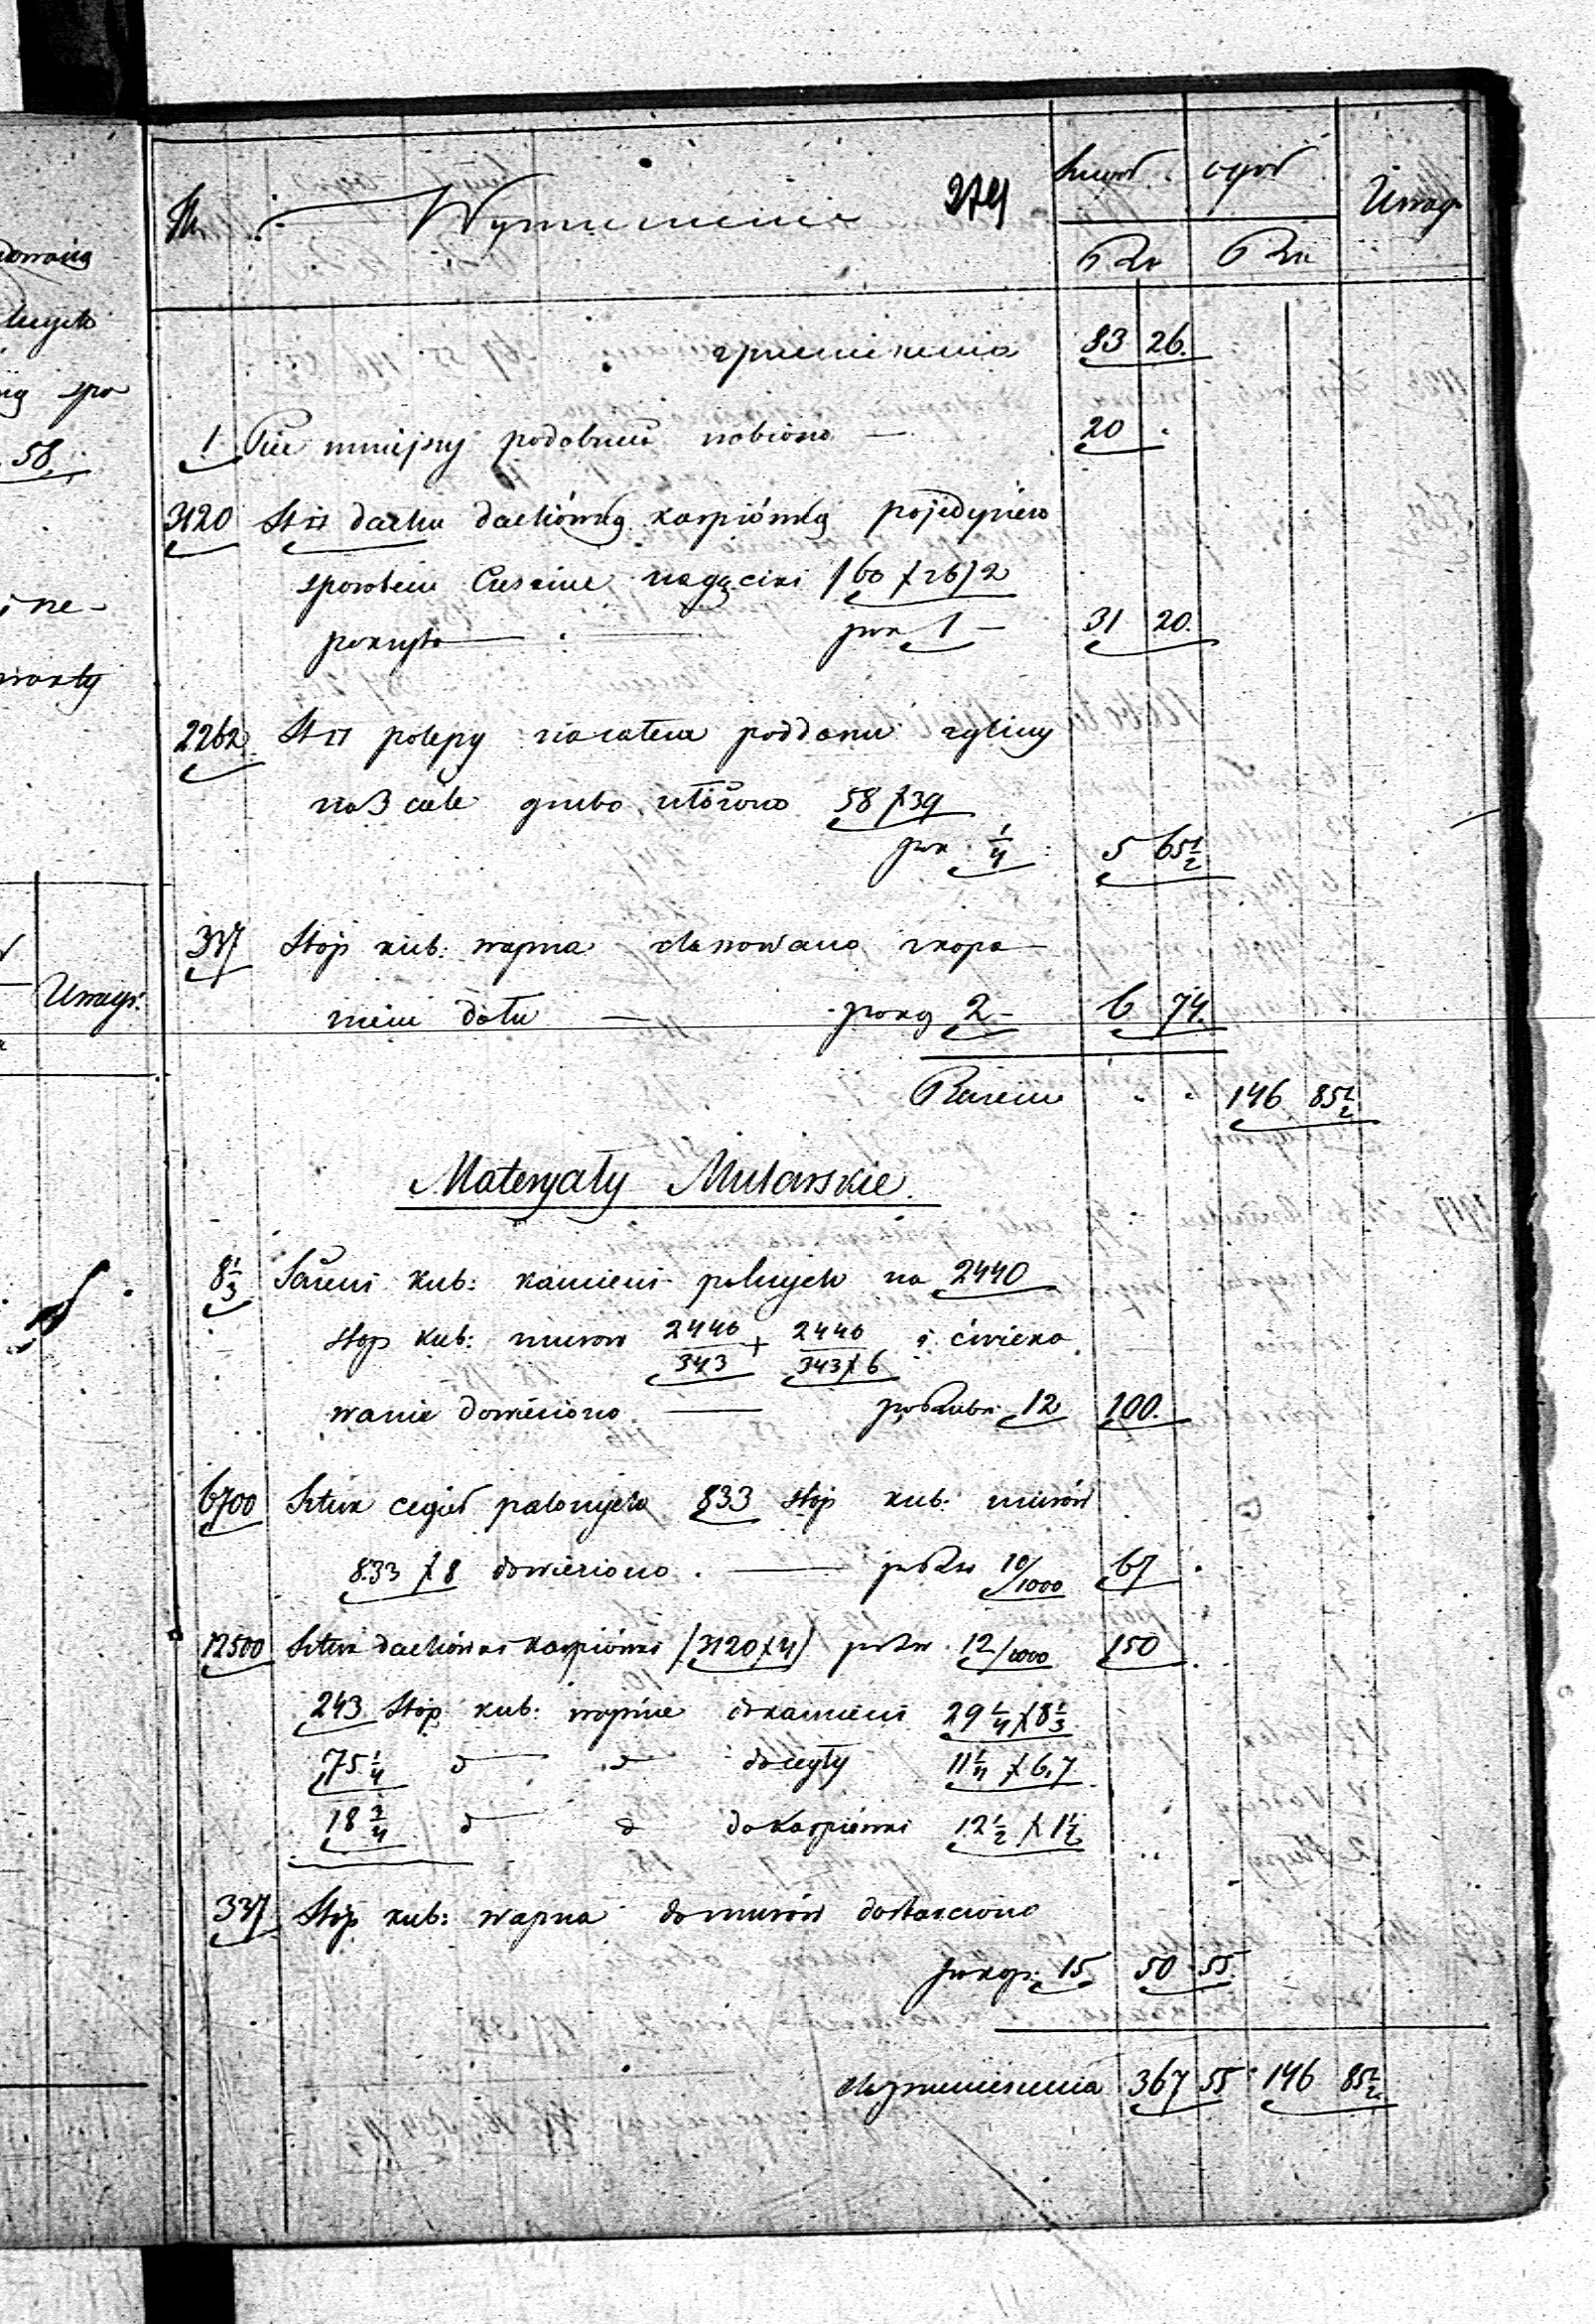 dowaną
nych
ną spo
58.
i ne-
warty
Uwagi.
No. Wymienienie 274 Szczeg. ogół Uwag.
Rs. k Rs. k
z przeniesienia 83 26.
1 Piec mniejszy podobnież zrobiono — 20 "
3120 St □ dachu dachówką karpiówką pojedyńczo
sposobem Cuskim na gąciki /60 × 26/ 2
pokryto — po k 1 — 31 20.
2262 St □ polepy na całem poddaszu z gliny
na 3 cale grubo ułożono 58 × 39
po k ¼ 5 65½
337 Stóp kub: wapna zlasowano z kopa-
niem dołu — po kop 2 - 6 74.
Razem " " 146 85½
Materyały Mularskie.
8⅓ Sążeni kub: kamieni polnych na 2440
stóp kub: murów 2440/343 + 2440/343×6 i ćwieko
wanie dowieziono — po Rubr. 12 100.
6700 Sztuk cegieł palonych 833 stóp kub: murów
833 × 8 dowieziono. — po Rsr 10/1000 67 "
12500 Sztuk dachówki karpiówki /3120×4/ po Rsr. 12/1000 150
243 Stóp kub: wapna do kamieni 29¼ × 8⅓
75¼ d d do cegły 11¼ × 6,7
18¾ d d do karpiówki 12½ × 1½ "
337 Stóp kub: wapna do murów dostarczono
po kop: 15 50 55.
do przeniesienia 367 55 146 85½